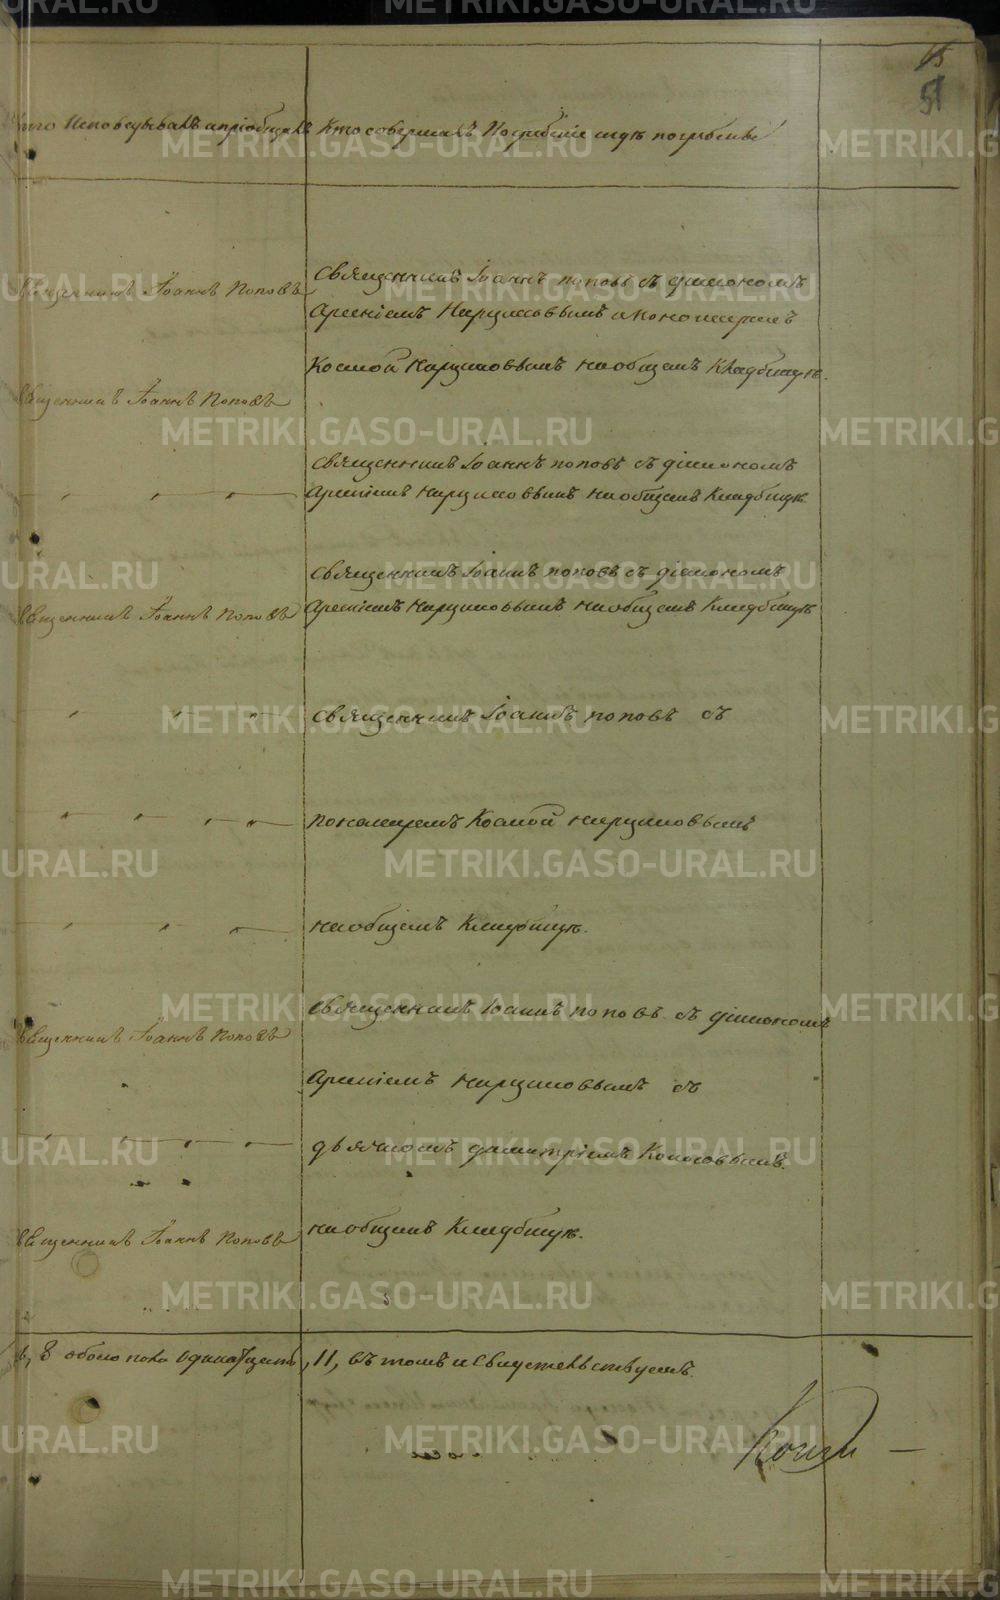 15
51
Кто Исповедывалъ и пріобщалъ
Кто совершалъ Погребеніе и гдѣ погребены
Священникъ Іоаннъ Поповъ
Священникъ Іоаннъ поповъ съ діакономъ
Арсеніемъ Нарциссовымъ и пономаремъ
Космой Нарциссовымъ на общемъ Кладбищѣ.
Священникъ Іоаннъ Поповъ
Священникъ Іоаннъ поповъ съ діакономъ
Арсеніемъ Нарциссовымъ на общемъ Кладбищѣ.
Священникъ Іоаннъ поповъ съ діакономъ
Священникъ Іоаннъ Поповъ
Арсеніемъ Нарциссовымъ на общемъ Кладбищѣ
Священникъ Іоаннъ поповъ съ
пономаремъ Космой Нарциссовымъ
на общемъ Кладбищѣ.
Священникъ Іоаннъ поповъ съ діакономъ
Священникъ Іоаннъ Поповъ
Арсеніемъ Нарциссовымъ съ
дьячкомъ димитріемъ
на общемъ Кладбищѣ.
Священникъ Іоаннъ Поповъ
8 обоего пола Одинадцать, 11, въ томъ и Свидетельствуемъ.
METRIKI.GASO-URAL.RU